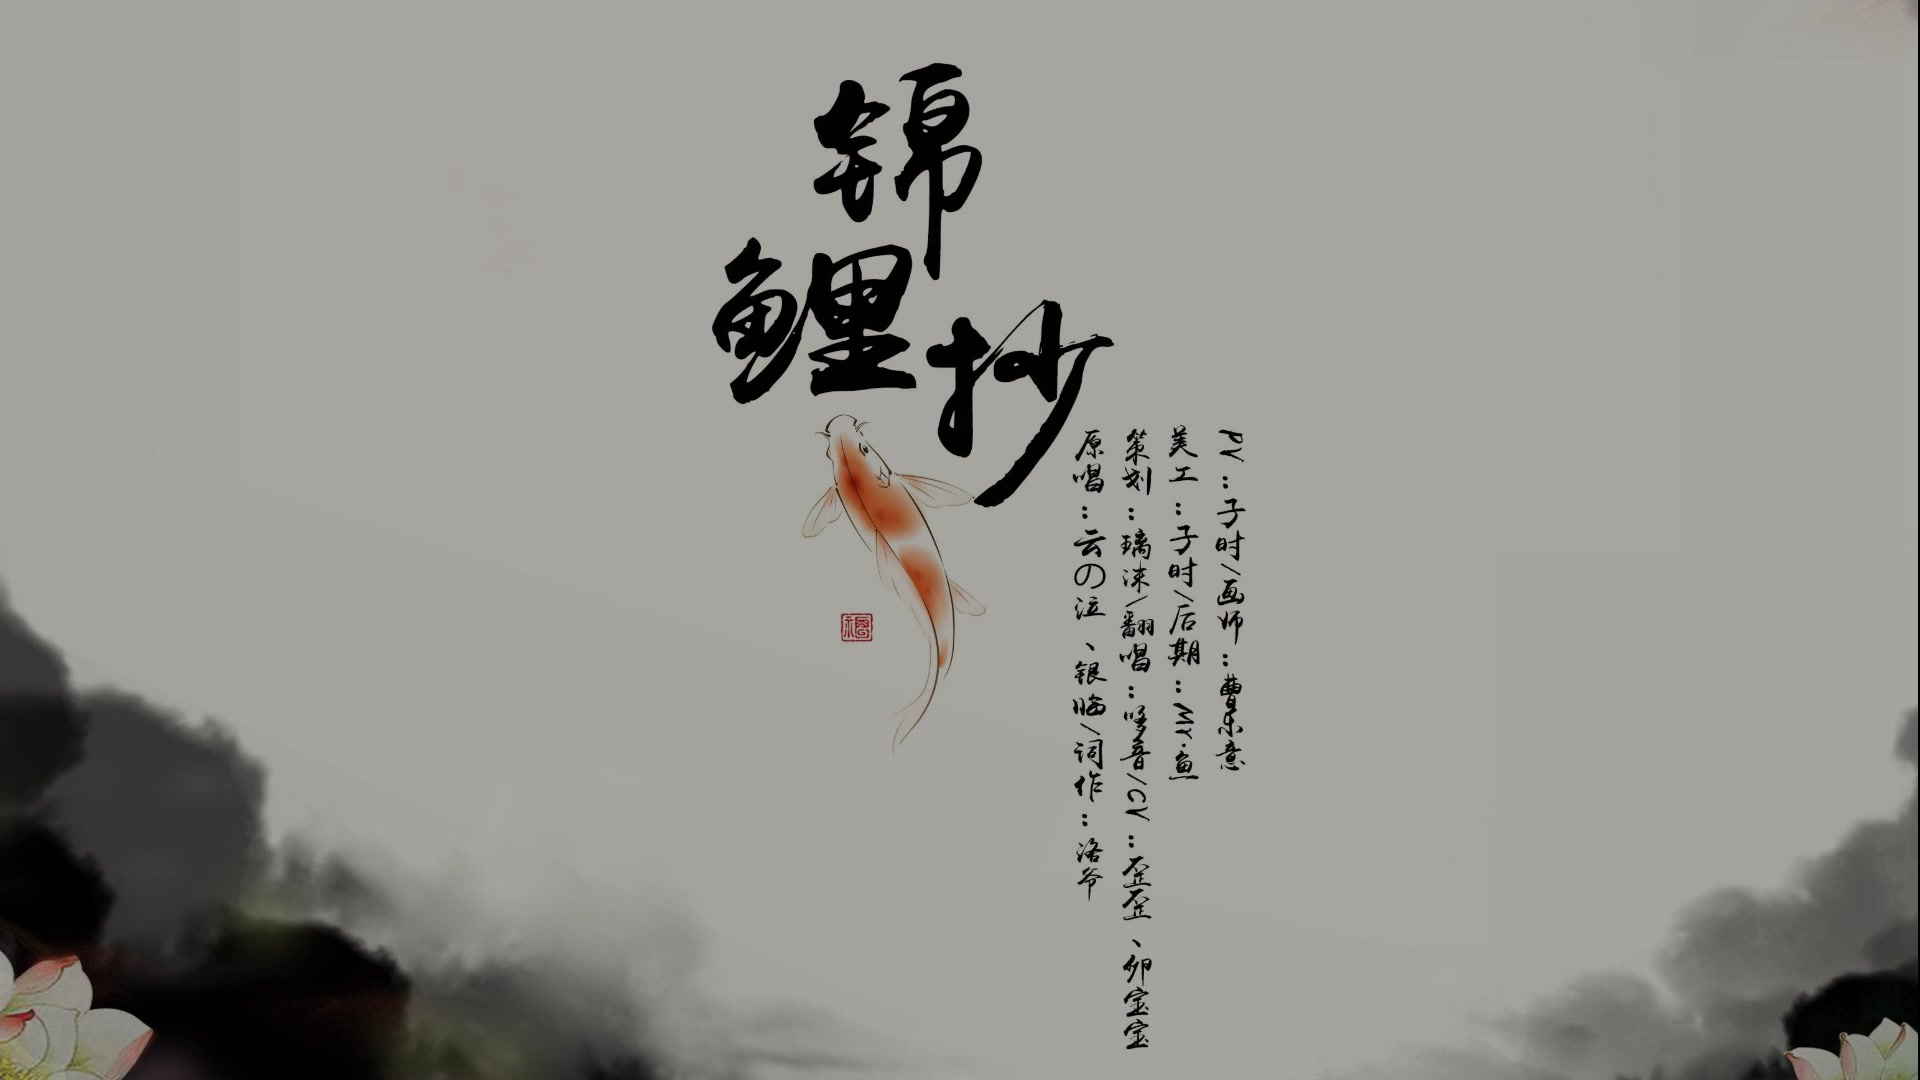 锦鲤抄
原唱：云の泣、银临/词作：洛爷
策划：璃沫/翻唱：哆音/CV：歪歪、卵宝宝
美工：子时/后期：MY.鱼
PV：子时/画师：曹乐意